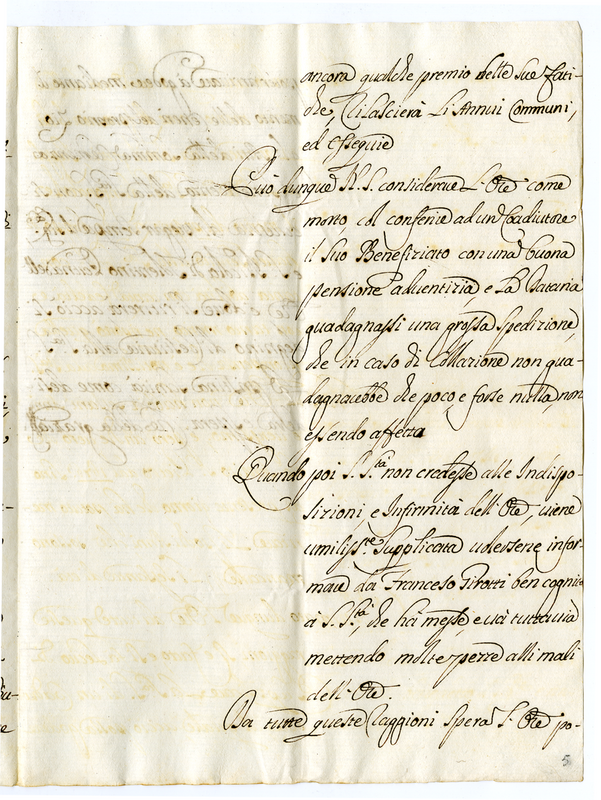 ancora qualche premio delle sue fati-
che, e li lascierà li Annui Communi,
ed esseguie
Può dunque N. S. considerare l'Ore come
morto, ed conferire ad un Coadiutore
il suo Benefiziato con una buona
pensione adventizia, e la Dataria
guadagnassi una grossa spedizione,
che in caso di Collazione non gua-
dagnarebbe che poco, e forse nulla, non
essendo affetta
Quando poi S. S.tà non credesse alle Indispo-
sizioni, e Infirmità dell'Ore, viene
umiliss.te Supplicata volersene infor-
mare da Francesco Pirotti ben cognito
à S. S.tà, che hà messe, e và tuttavia
mettendo molte pezze alli mali
dell'Ore.
Da tutte queste Raggioni spera l'Ore po-
5